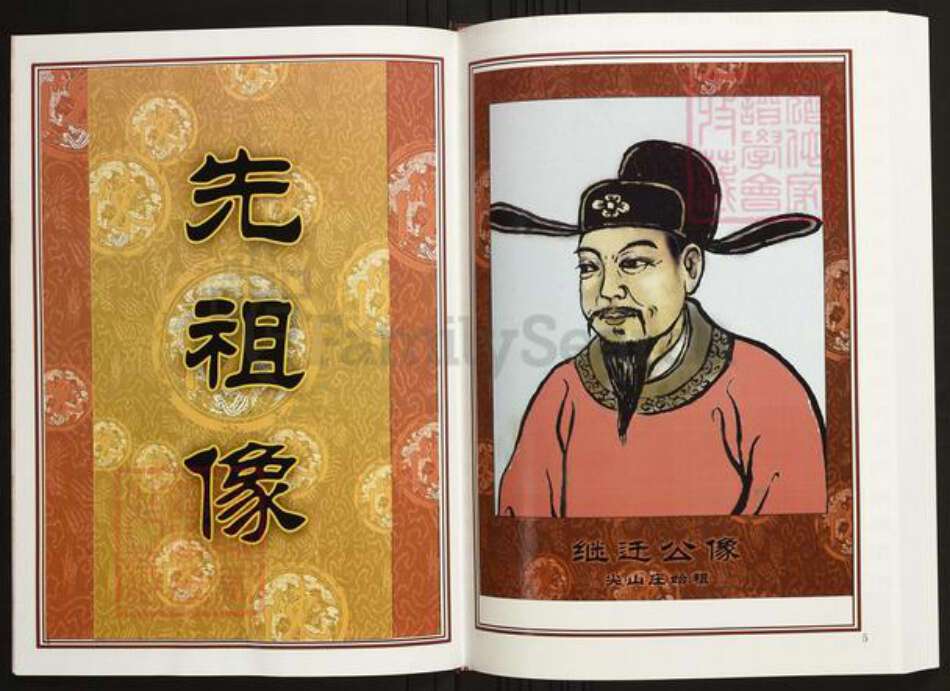 先祖像
FamilySe
继迁公像
尖山庄始祖
5